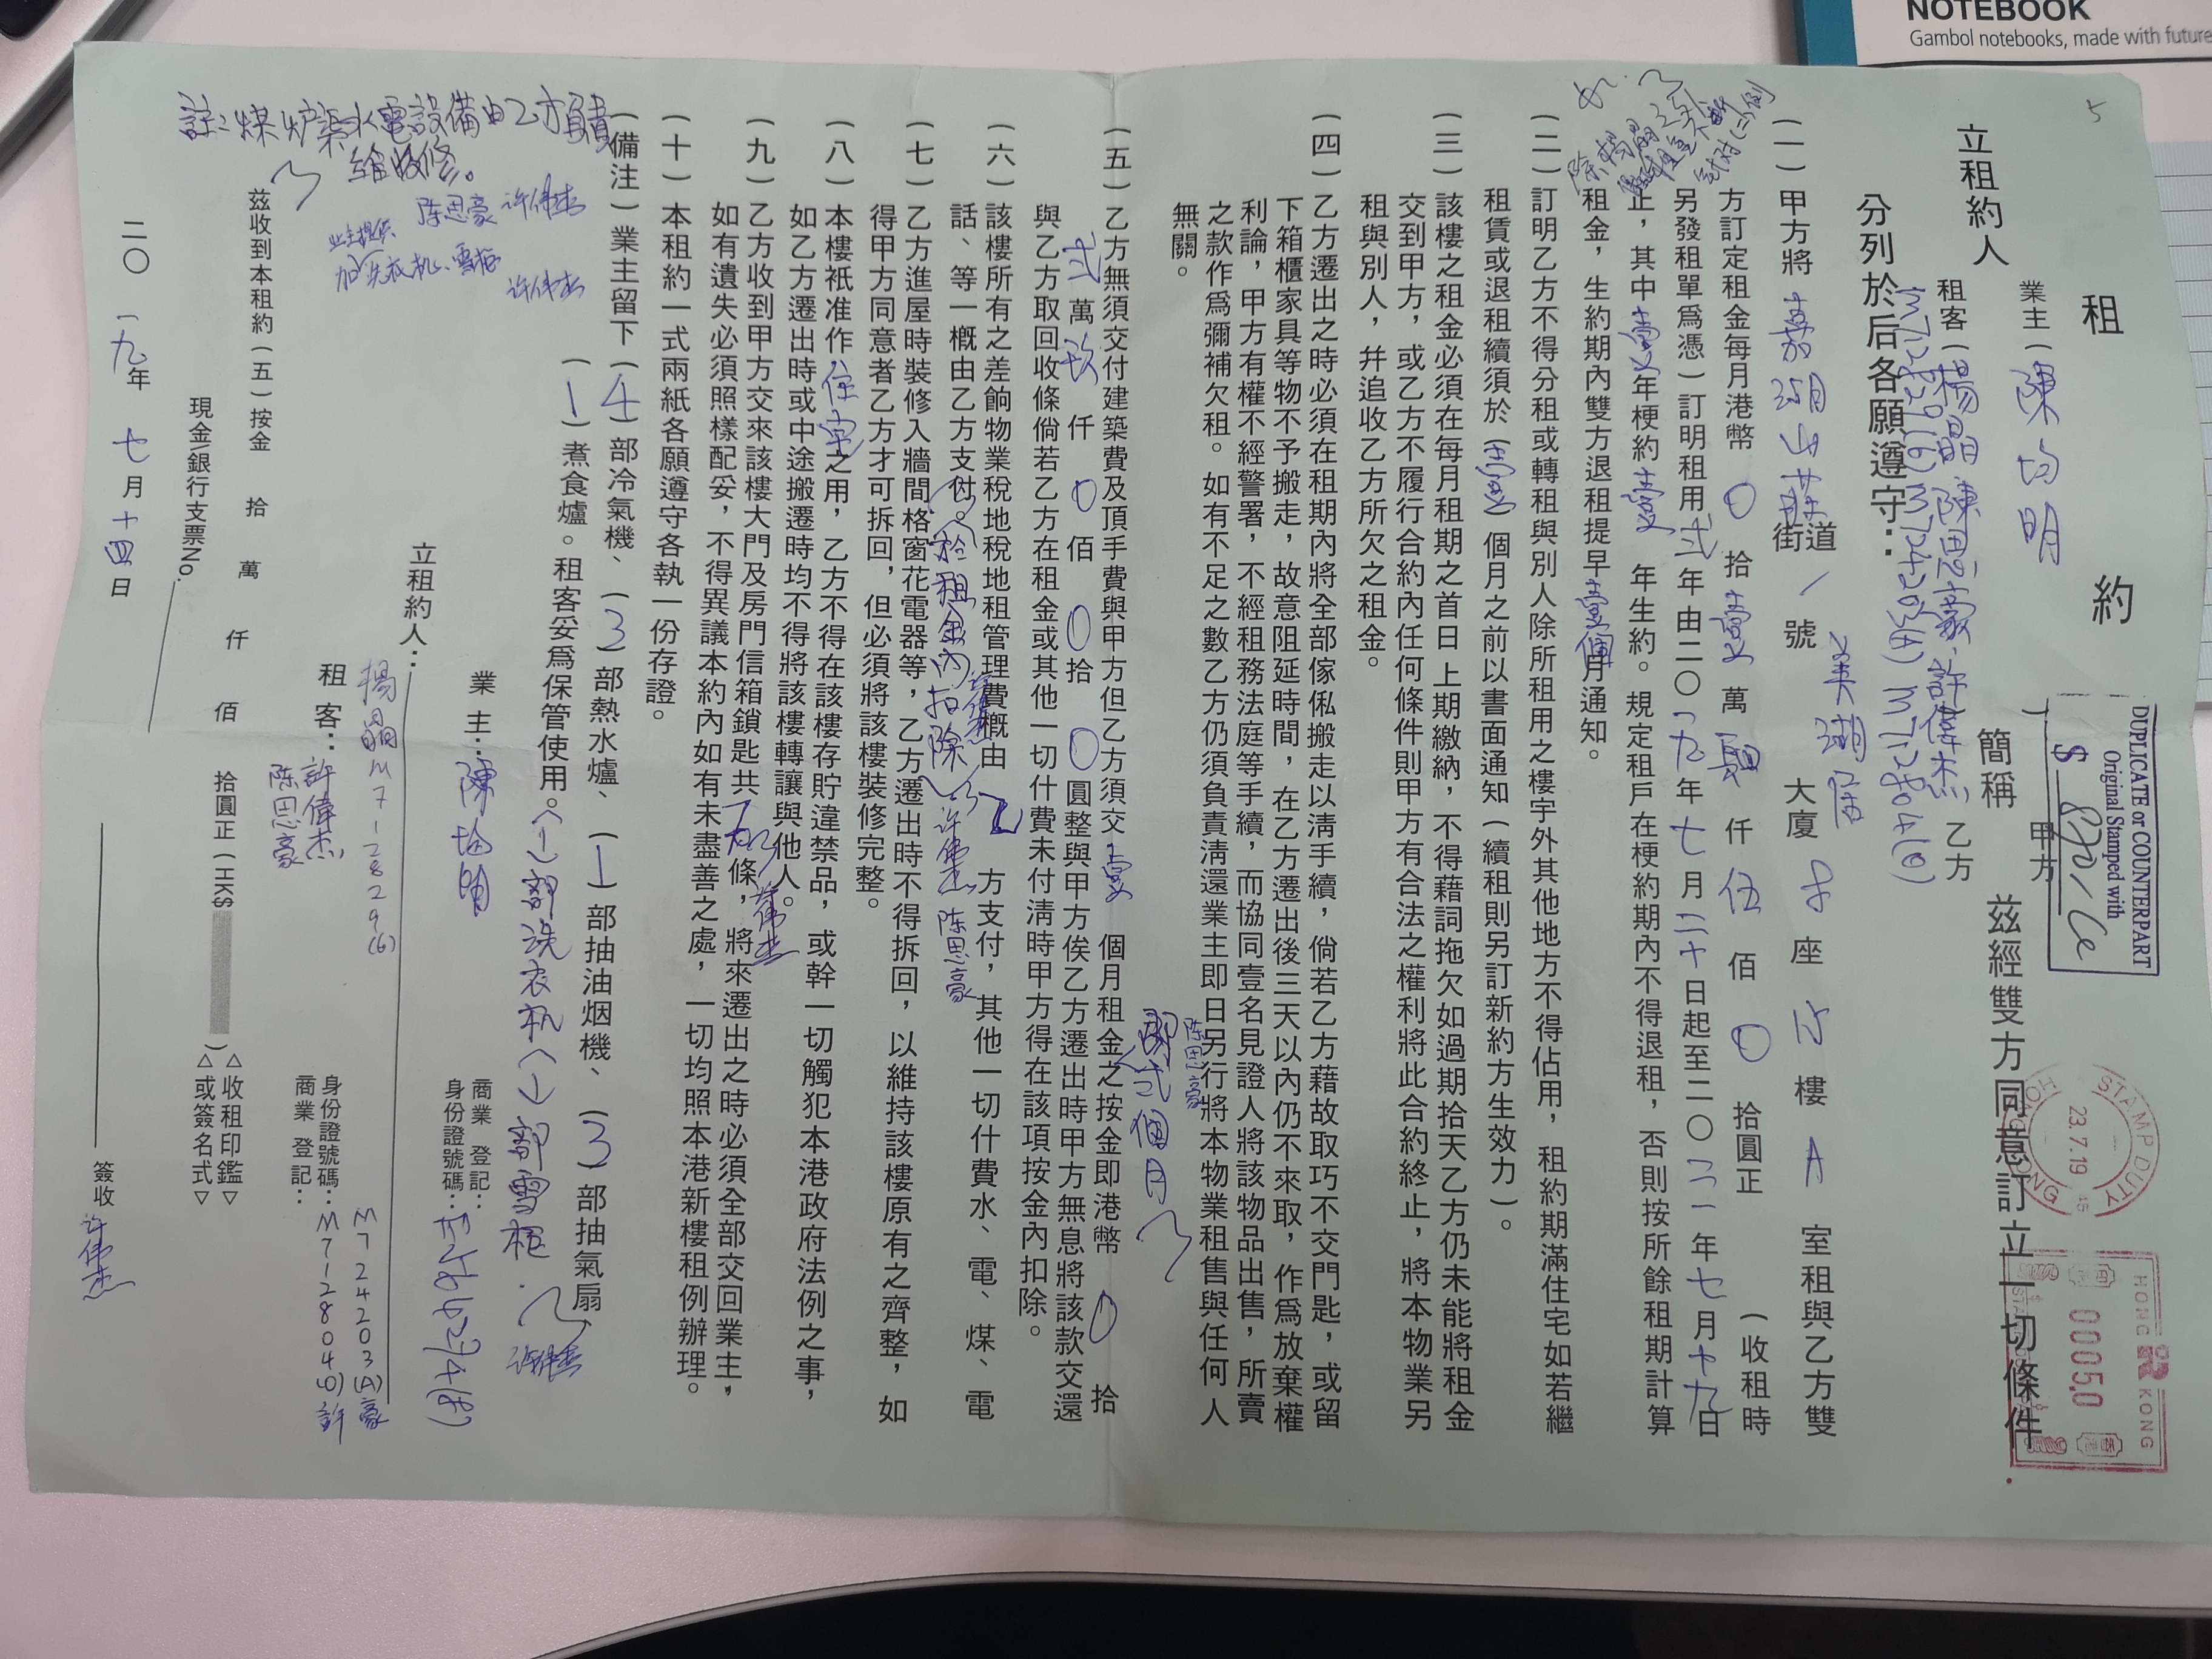 NOTEBOOK
Gambol notebooks, made with future
5
租約
立租約人
業主（陳均明
簡稱
甲方
租客（楊晶 陳思豪、許偉杰
乙方
茲經雙方同意訂立一切條件
分列於后各願遵守：
DUPLICATE or COUNTERPART
Original Stamped with
$
STAMP DUTY
HONG KONG
23.7.19
HONG KONG
0005.0
（一）甲方將 嘉湖山莊 街道 / 號 美湖居 大廈 座 樓 A 室租與乙方雙
方訂定租金每月港幣 0 拾 壹 萬 仟 伍 佰 0 拾圓正（收租時
另發租單爲憑）訂明租用 弍 年由二〇一九年七月二十日起至二〇二一年七月十九日
止，其中壹年梗約壹年生約。規定租戶在梗約期內不得退租，否則按所餘租期計算
租金，生約期內雙方退租提早壹個月通知。
（二）訂明乙方不得分租或轉租與別人除所租用之樓宇外其他地方不得佔用，租約期滿住宅如若繼
租賃或退租續須於（壹）個月之前以書面通知（續租則另訂新約方生效力）。
（三）該樓之租金必須在每月租期之首日上期繳納，不得藉詞拖欠如過期拾天乙方仍未能將租金
交到甲方，或乙方不履行合約內任何條件則甲方有合法之權利將此合約終止，將本物業另
租與別人，幷追收乙方所欠之租金。
（四）乙方遷出之時必須在租期內將全部傢俬搬走以淸手續，倘若乙方藉故取巧不交門匙，或留
下箱櫃家具等物不予搬走，故意阻延時間，在乙方遷出後三天以內仍不來取，作爲放棄權
利論，甲方有權不經警署，不經租務法庭等手續，而協同壹名見證人將該物品出售，所賣
之款作爲彌補欠租。如有不足之數乙方仍須負責淸還業主即日另行將本物業租售與任何人
無關。
陈思豪
即弍個月
（五）乙方無須交付建築費及頂手費與甲方但乙方須交 壹 個月租金之按金即港幣 0 拾
弍 萬 玖 仟 0 佰 0 拾 0 圓整與甲方俟乙方遷出時甲方無息將該款交還
與乙方取回收條倘若乙方在租金或其他一切什費未付淸時甲方得在該項按金內扣除。
（六）該樓所有之差餉物業稅地稅地租管理費概由 乙 方支付，其他一切什費水、電、煤、電
話、等一概由乙方支付。（於租金內扣除） 许偉杰 陈思豪
（七）乙方進屋時裝修入牆間格窗花電器等，乙方遷出時不得拆回，以維持該樓原有之齊整，如
得甲方同意者乙方才可拆回，但必須將該樓裝修完整。
（八）本樓祇准作住宅之用，乙方不得在該樓存貯違禁品，或幹一切觸犯本港政府法例之事，
如乙方遷出時或中途搬遷時均不得將該樓轉讓與他人。
（九）乙方收到甲方交來該樓大門及房門信箱鎖匙共 條，將來遷出之時必須全部交回業主，
如有遺失必須照樣配妥，不得異議本約內如有未盡善之處，一切均照本港新樓租例辦理。
（十）本租約一式兩紙各願遵守各執一份存證。
（備注）業主留下（4）部冷氣機、（3）部熱水爐、（1）部抽油烟機、（3）部抽氣扇
（1）煮食爐。租客妥爲保管使用。（1）部洗衣机（1）部雪柜.
许偉杰
註：煤炉渠水電設備由乙方負責
維修。
陈思豪 许偉杰
业主提供
加洗衣机、雪柜
许偉杰
立租約人：
業主：陳均明
商業登記：
身份證號碼：
租客：
楊晶 M712829(6)
許偉杰
陈思豪
身份證號碼：
商業登記：
M724203(A)豪
M712804(0)許
茲收到本租約（五）按金 拾 萬 仟 佰 拾圓正（HK$ ）
△收租印鑑▽
△或簽名式▽
現金/銀行支票No.
二〇一九年七月十四日
簽收 许偉杰